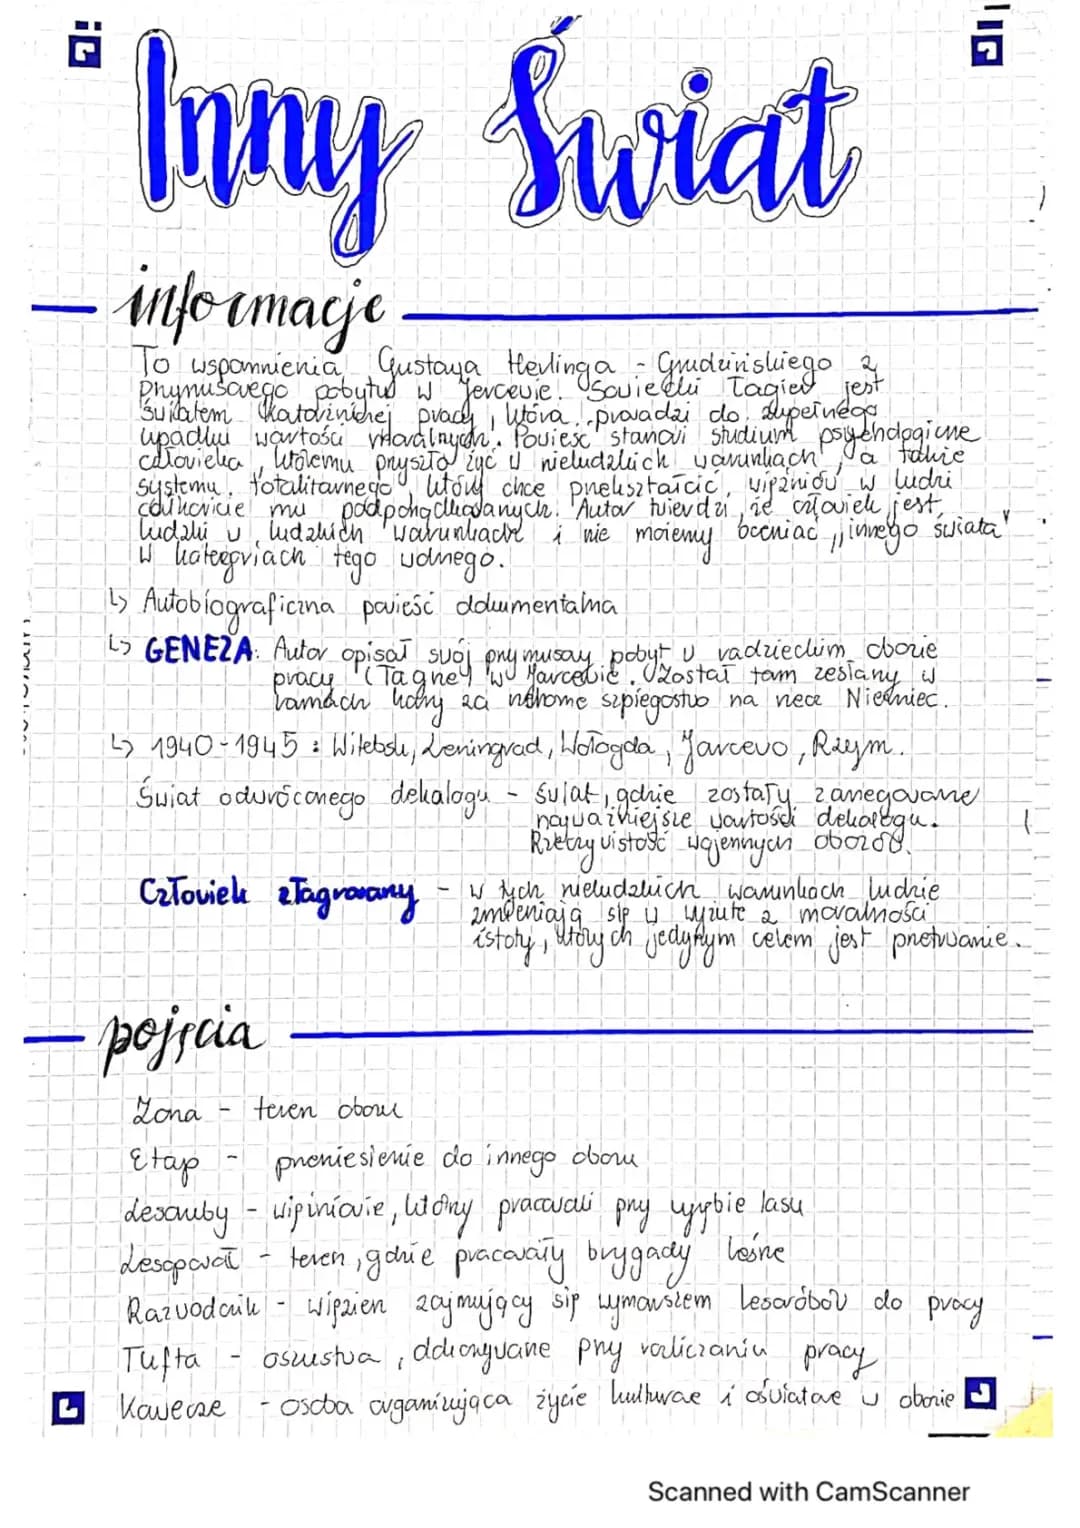 Inny Świat
informacje
To wspomnienia Gustava Herlinga - Grudzińskiego z
przymusowego pobytu w Jercewie. Sowiecki Łagier jest
światem katorżniczej pracy, która prowadzi do zupełnego
upadku wartości moralnych. Powieść stanowi studium psychologiczne
człowieka, któremu przyszło żyć w nieludzkich warunkach, a także
systemu totalitarnego, który chce przekształcić więźniów w ludzi
całkowicie mu podporządkowanych. Autor twierdzi, że człowiek jest
ludzki w ludzkich warunkach i nie możemy oceniać „innego świata"
w kategoriach tego wolnego.
↳ Autobiograficzna powieść dokumentalna
↳ GENEZA: Autor opisał swój przymusowy pobyt w radzieckim obozie
pracy (Łagrze) w Jarcewie. Został tam zesłany w
ramach kary za rzekome szpiegostwo na rzecz Niemiec.
↳ 1940-1945: Witebsk, Leningrad, Wołogda, Jarcewo, Rzym.
Świat odwróconego dekalogu - świat, gdzie zostały zanegowane
najważniejsze wartości dekalogu.
Rzeczywistość wojennych obozów.
Człowiek złagrowany - w tych nieludzkich warunkach ludzie
zmieniają się w wyzute z moralności
istoty, których jedynym celem jest przetrwanie.
pojęcia
Zona - teren obozu
Etap - przeniesienie do innego obozu
Lesoruby - więźniowie, którzy pracowali przy wyrębie lasu
Lesopował - teren, gdzie pracowały brygady leśne
Razwodczik - więzień zajmujący się wymarszem lesorobów do pracy
Tufta - oszustwa, dokonywane przy rozliczaniu pracy
Kawecze - osoba organizująca życie kulturae i oświatowe w obozie
Scanned with CamScanner